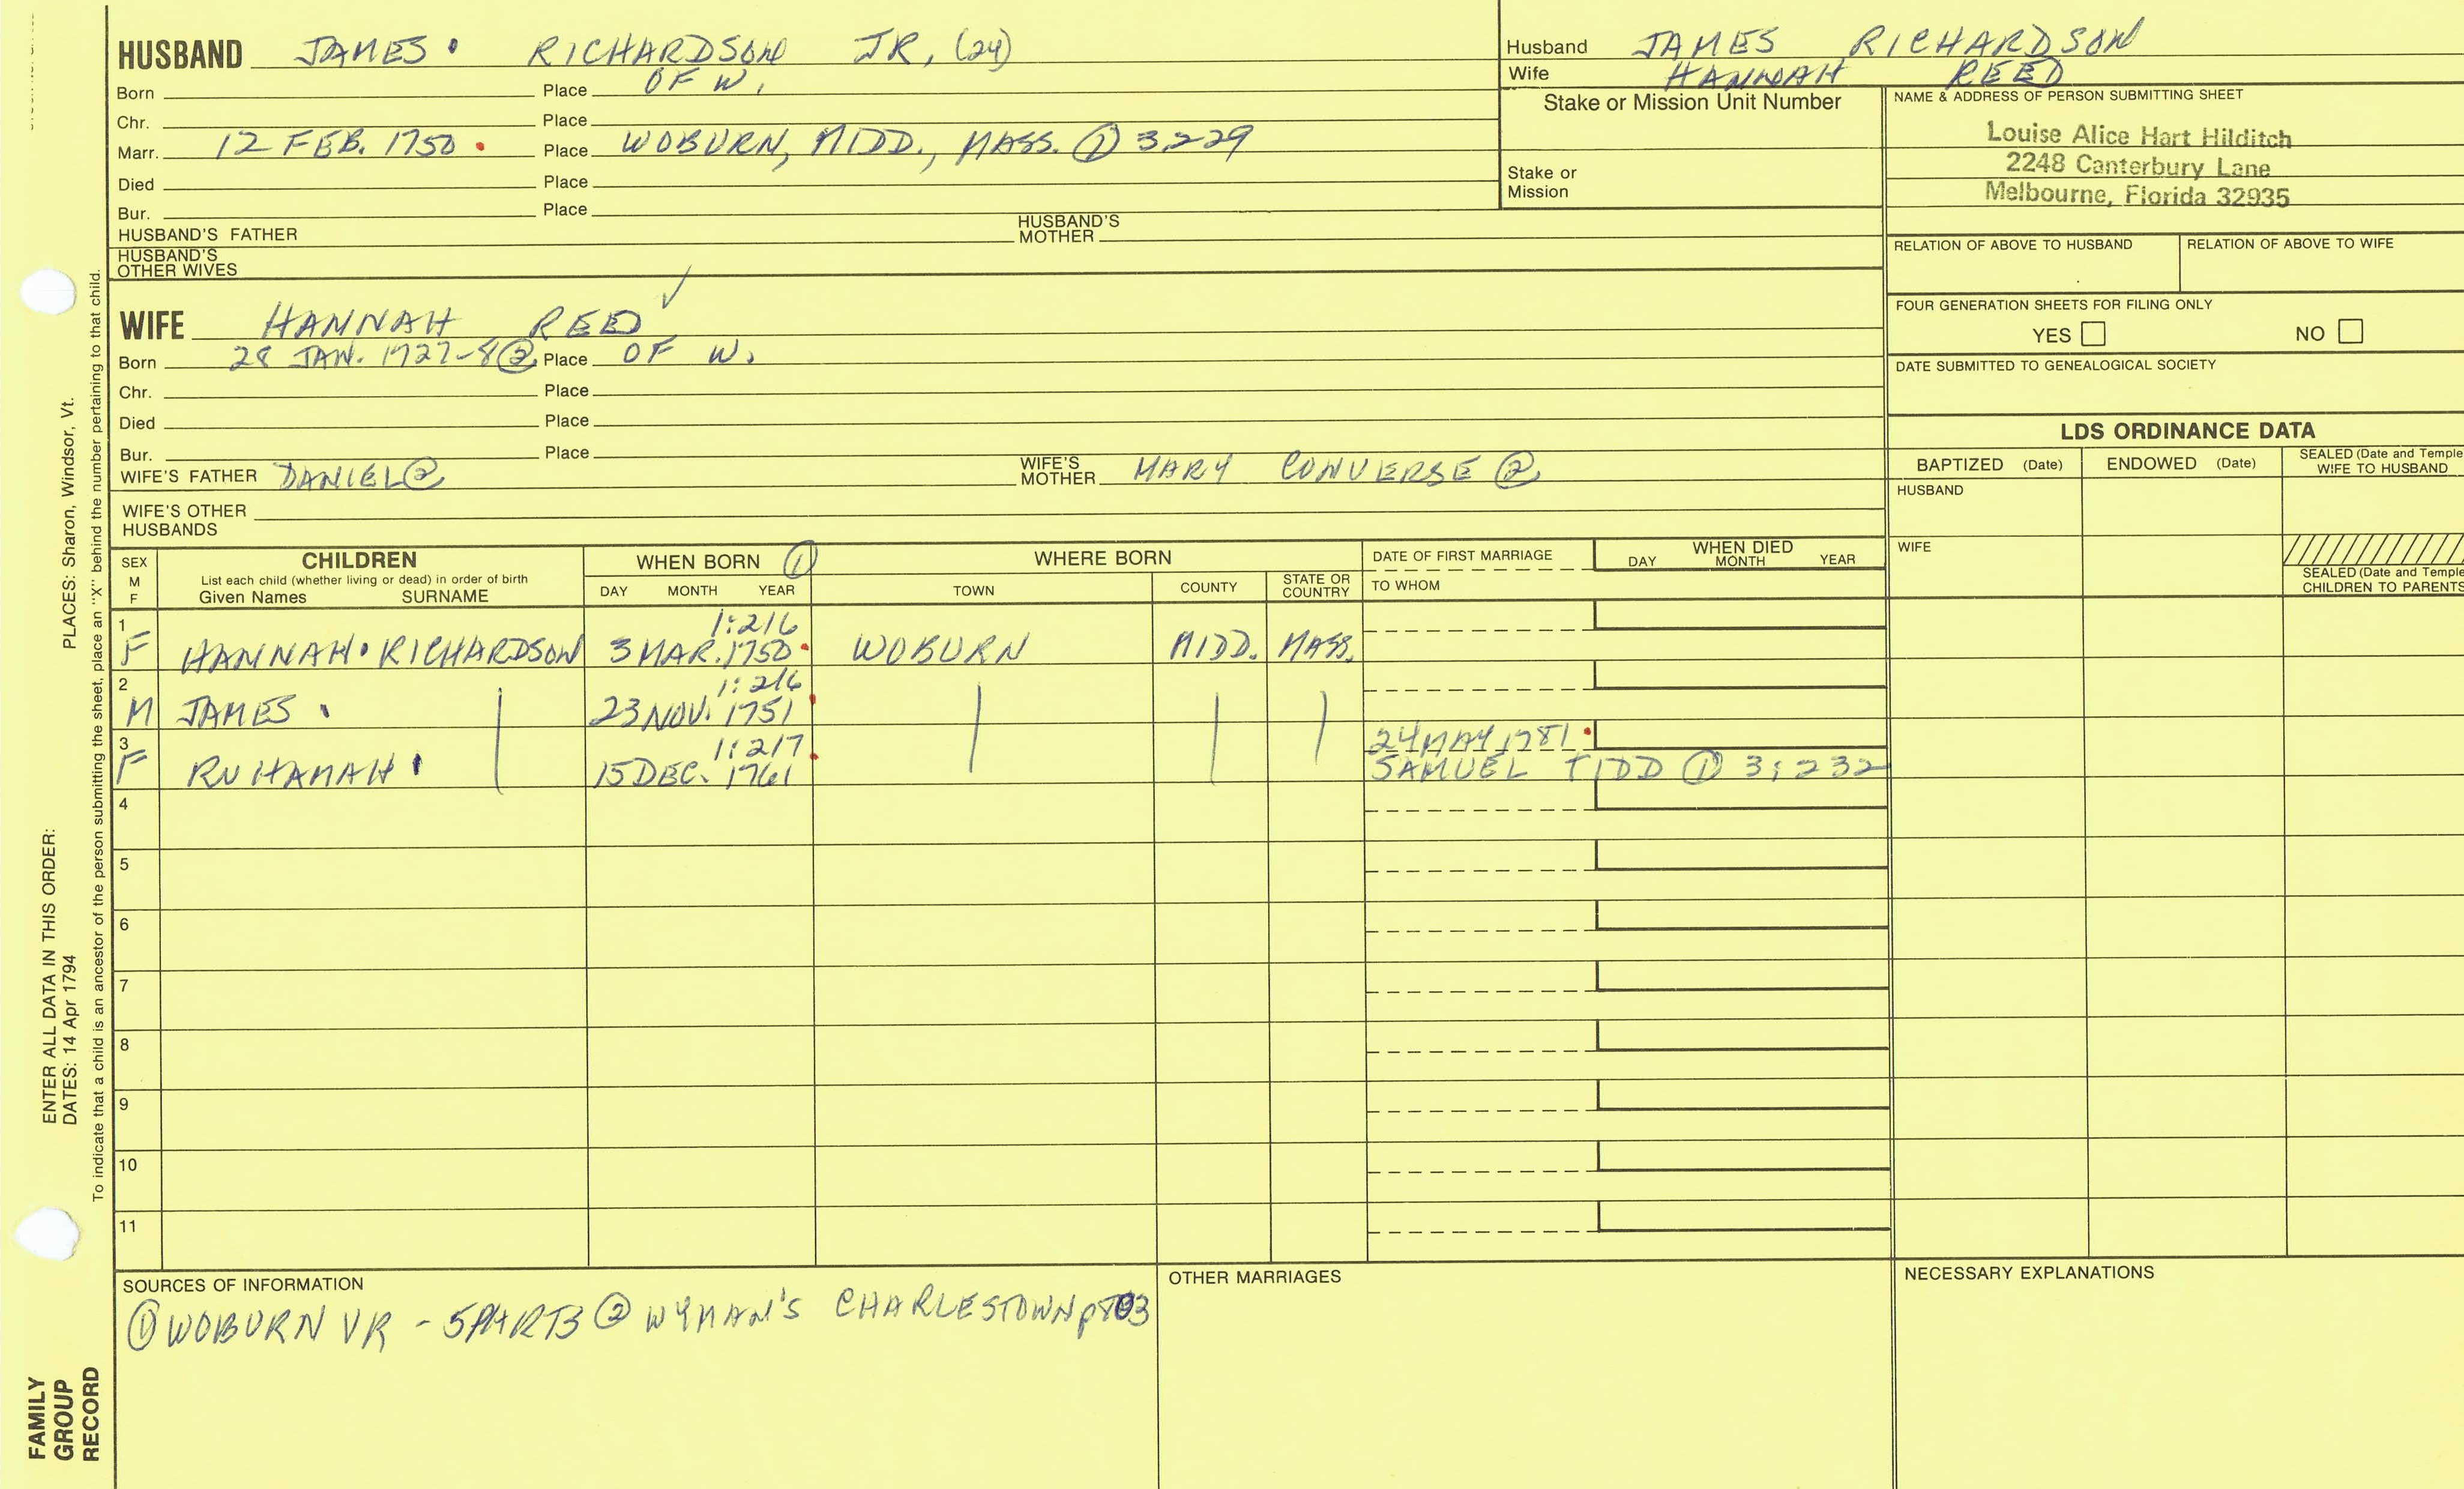 HUSBAND JAMES RICHARDSON JR, (24)
Born Place OF W.
Chr. Place
Marr. 12 FEB. 1750 Place WOBURN, MIDD., MASS. ① 3,229
Died Place
Bur. Place
HUSBAND'S FATHER HUSBAND'S MOTHER
HUSBAND'S OTHER WIVES
Husband JAMES RICHARDSON
Wife HANNAH REED
Stake or Mission Unit Number
Stake or Mission
NAME & ADDRESS OF PERSON SUBMITTING SHEET
Louise Alice Hart Hilditch
2248 Canterbury Lane
Melbourne, Florida 32935
RELATION OF ABOVE TO HUSBAND RELATION OF ABOVE TO WIFE
FOUR GENERATION SHEETS FOR FILING ONLY
YES NO
DATE SUBMITTED TO GENEALOGICAL SOCIETY
WIFE HANNAH REED ✓
Born 28 JAN. 1727-8 ② Place OF W.
Chr. Place
Died Place
Bur. Place
WIFE'S FATHER DANIEL ② WIFE'S MOTHER MARY CONVERSE ②
WIFE'S OTHER HUSBANDS
LDS ORDINANCE DATA
BAPTIZED (Date) ENDOWED (Date) SEALED (Date and Temple
WIFE TO HUSBAND
HUSBAND
WIFE
SEALED (Date and Temple
CHILDREN TO PARENTS
SEX
M
F
CHILDREN
List each child (whether living or dead) in order of birth
Given Names SURNAME
WHEN BORN ①
DAY MONTH YEAR
WHERE BORN
TOWN COUNTY STATE OR COUNTRY
DATE OF FIRST MARRIAGE
TO WHOM
WHEN DIED
DAY MONTH YEAR
1 1:216
F HANNAH RICHARDSON 3 MAR. 1750 WOBURN MIDD. MASS.
2 1:216
M JAMES 23 NOV. 1751
3 1:217 24 MAY 1781
F RUHAMAH 15 DEC. 1761 SAMUEL TIDD ① 3:232
4
5
6
7
8
9
10
11
SOURCES OF INFORMATION
① WOBURN VR - 5 PARTS ② WYMAN'S CHARLESTOWN
OTHER MARRIAGES
NECESSARY EXPLANATIONS
PLACES: Sharon, Windsor, Vt.
To indicate that a child is an ancestor of the person submitting the sheet, place an "X" behind the number pertaining to that child.
ENTER ALL DATA IN THIS ORDER:
DATES: 14 Apr 1794
FAMILY
GROUP
RECORD